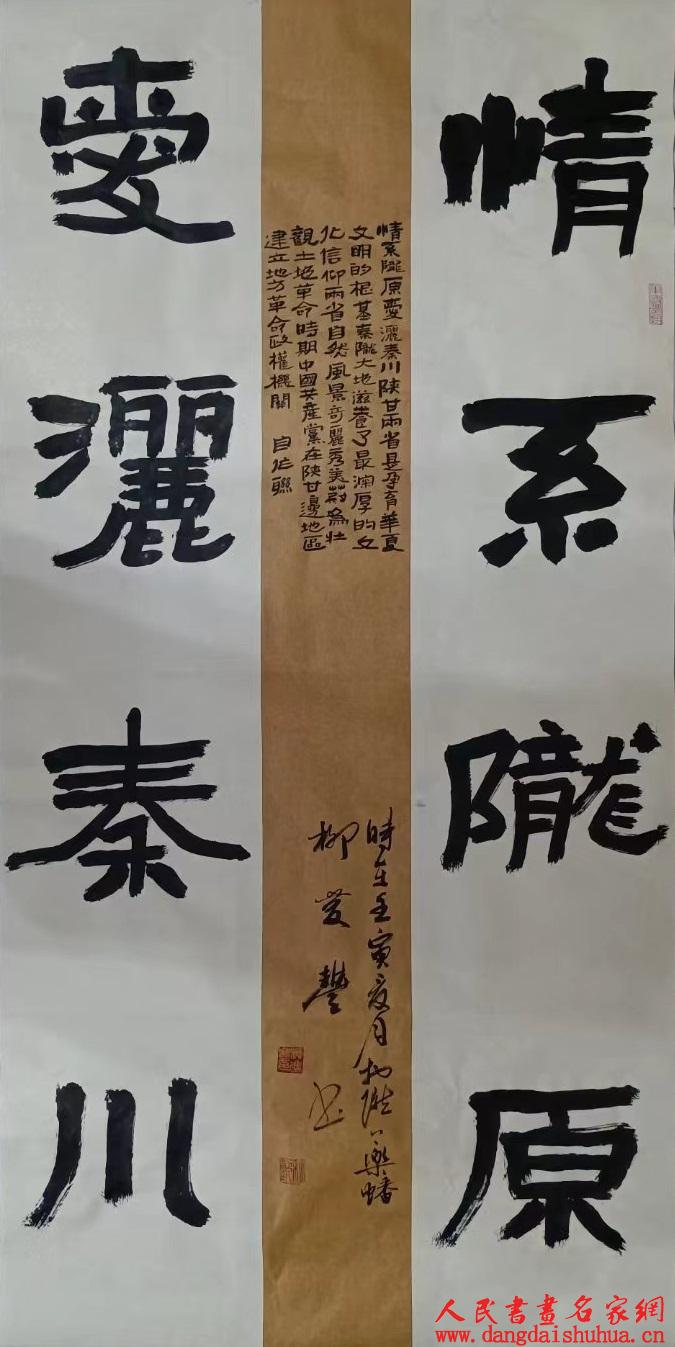 情系隴原
愛灑秦川
情系隴原愛灑秦川陝甘兩省是孕育華夏
文明的根基秦隴大地滋養了最深厚的文
化信仰兩省自然風景奇麗秀美蔚為壯
觀土地革命時期中國共產黨在陝甘邊地區
建立地方革命政權機關 自作聯
時在壬寅夏月於隴上樂蟠
柳
人民書畫名家網
www.dangdaishuhua.cn